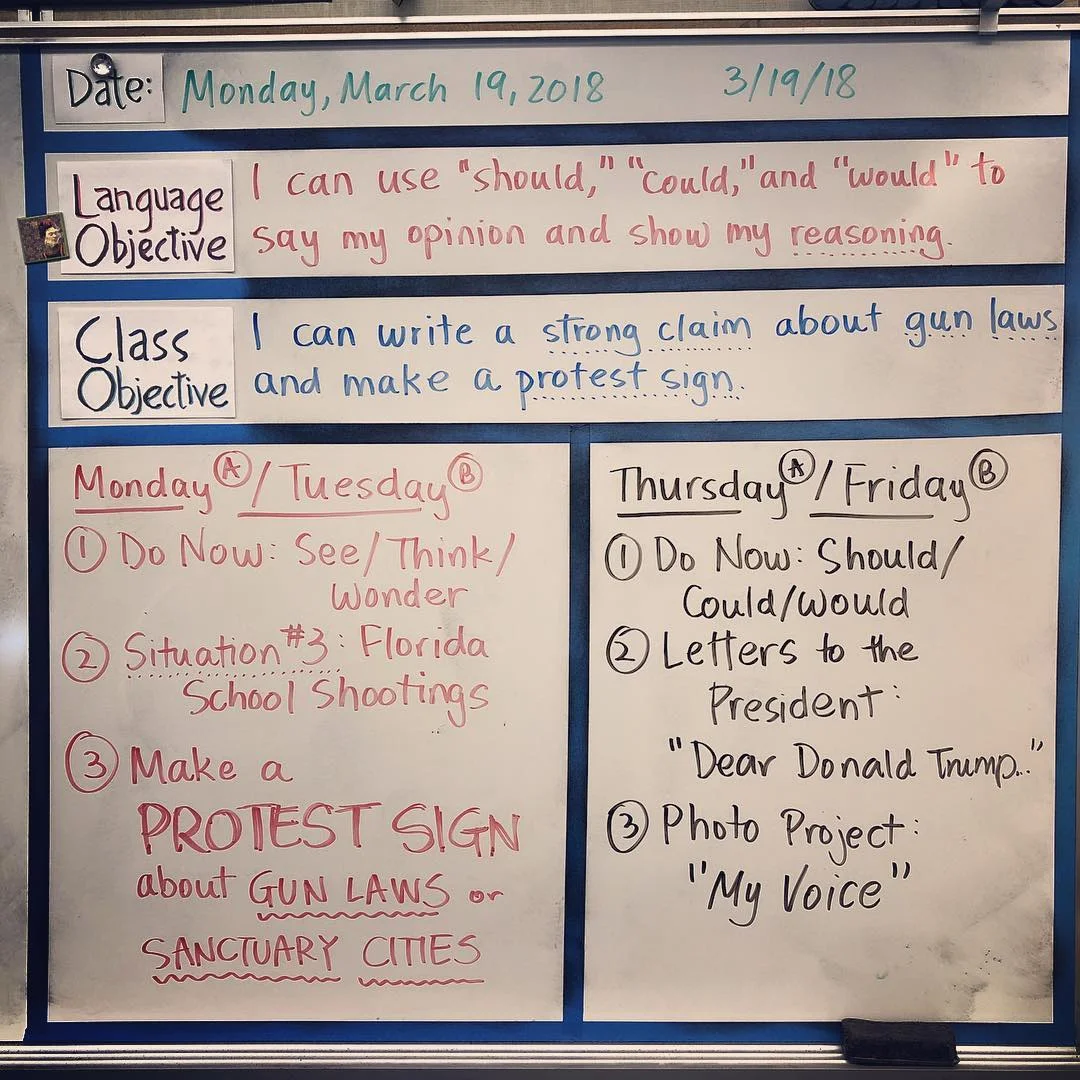 Date: Monday, March 19, 2018 3/19/18
Language Objective
I can use "should," "could," and "would" to
say my opinion and show my reasoning.
Class Objective
I can write a strong claim about gun laws
and make a protest sign.
Monday Ⓐ / Tuesday Ⓑ
① Do Now: See/Think/
Wonder
② Situation #3: Florida
School Shootings
③ Make a
PROTEST SIGN
about GUN LAWS or
SANCTUARY CITIES
Thursday Ⓐ / Friday Ⓑ
① Do Now: Should/
Could/Would
② Letters to the
President:
"Dear Donald Trump.."
③ Photo Project:
"My Voice"